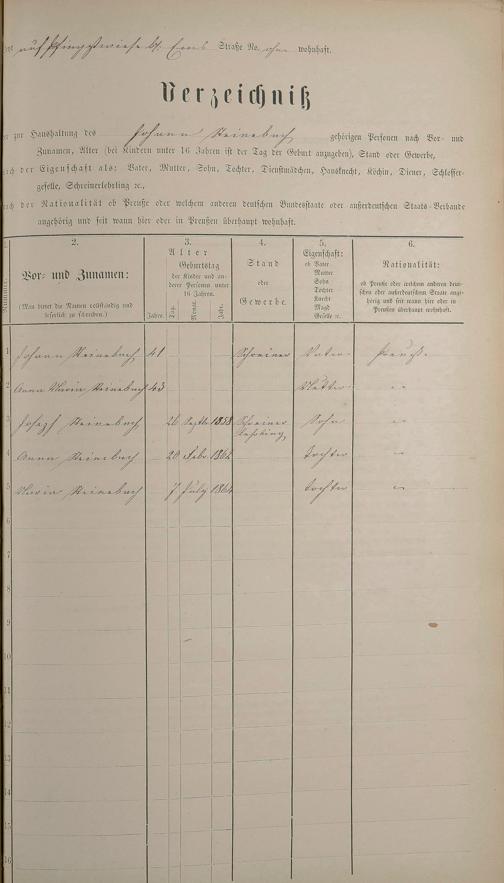 auf Pfingstwiese b/ Ems Straße No. ohne wohnhaft.
Verzeichniß
der zur Haushaltung des Johann Steinebach gehörigen Personen nach Vor- und
Zunamen, Alter (bei Kindern unter 16 Jahren ist der Tag der Geburt anzugeben), Stand oder Gewerbe,
durch der Eigenschaft als: Vater, Mutter, Sohn, Tochter, Dienstmädchen, Hausknecht, Köchin, Diener, Schlosser-
geselle, Schreinerlehrling ꝛc.,
durch der Nationalität ob Preuße oder welchem anderen deutschen Bundesstaate oder außerdeutschen Staats-Verbande
angehörig und seit wann hier oder in Preußen überhaupt wohnhaft.
1. 2. 3. 4. 5. 6.
Nummer.
Vor- und Zunamen:
(Man bittet die Namen vollständig und
leserlich zu schreiben.)
Alter
Jahre.
Geburtstag
der Kinder und an-
derer Personen unter
16 Jahren.
Tag. Monat. Jahr.
Stand
oder
Gewerbe.
Eigenschaft:
ob Vater
Mutter
Sohn
Tochter
Knecht
Magd
Geselle ꝛc.
Nationalität:
ob Preuße oder welchem anderen deut-
schen oder außerdeutschen Staate ange-
hörig und seit wann hier oder in
Preußen überhaupt wohnhaft.
1 Johann Steinebach 41 Schreiner Vater Preuße
2 Anna Maria Steinebach 43 Mutter "
3 Joseph Steinebach 26 Septbr 1858 Schreiner Lehrling Sohn "
4 Anna Steinebach 20 Febr. 1862 Tochter "
5 Maria Steinebach 7 July 1864 Tochter "
6
7
8
9
10
11
12
13
14
15
16